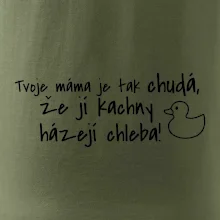 Tvoje máma je tak chudá,
že jí kachny
házejí chleba!